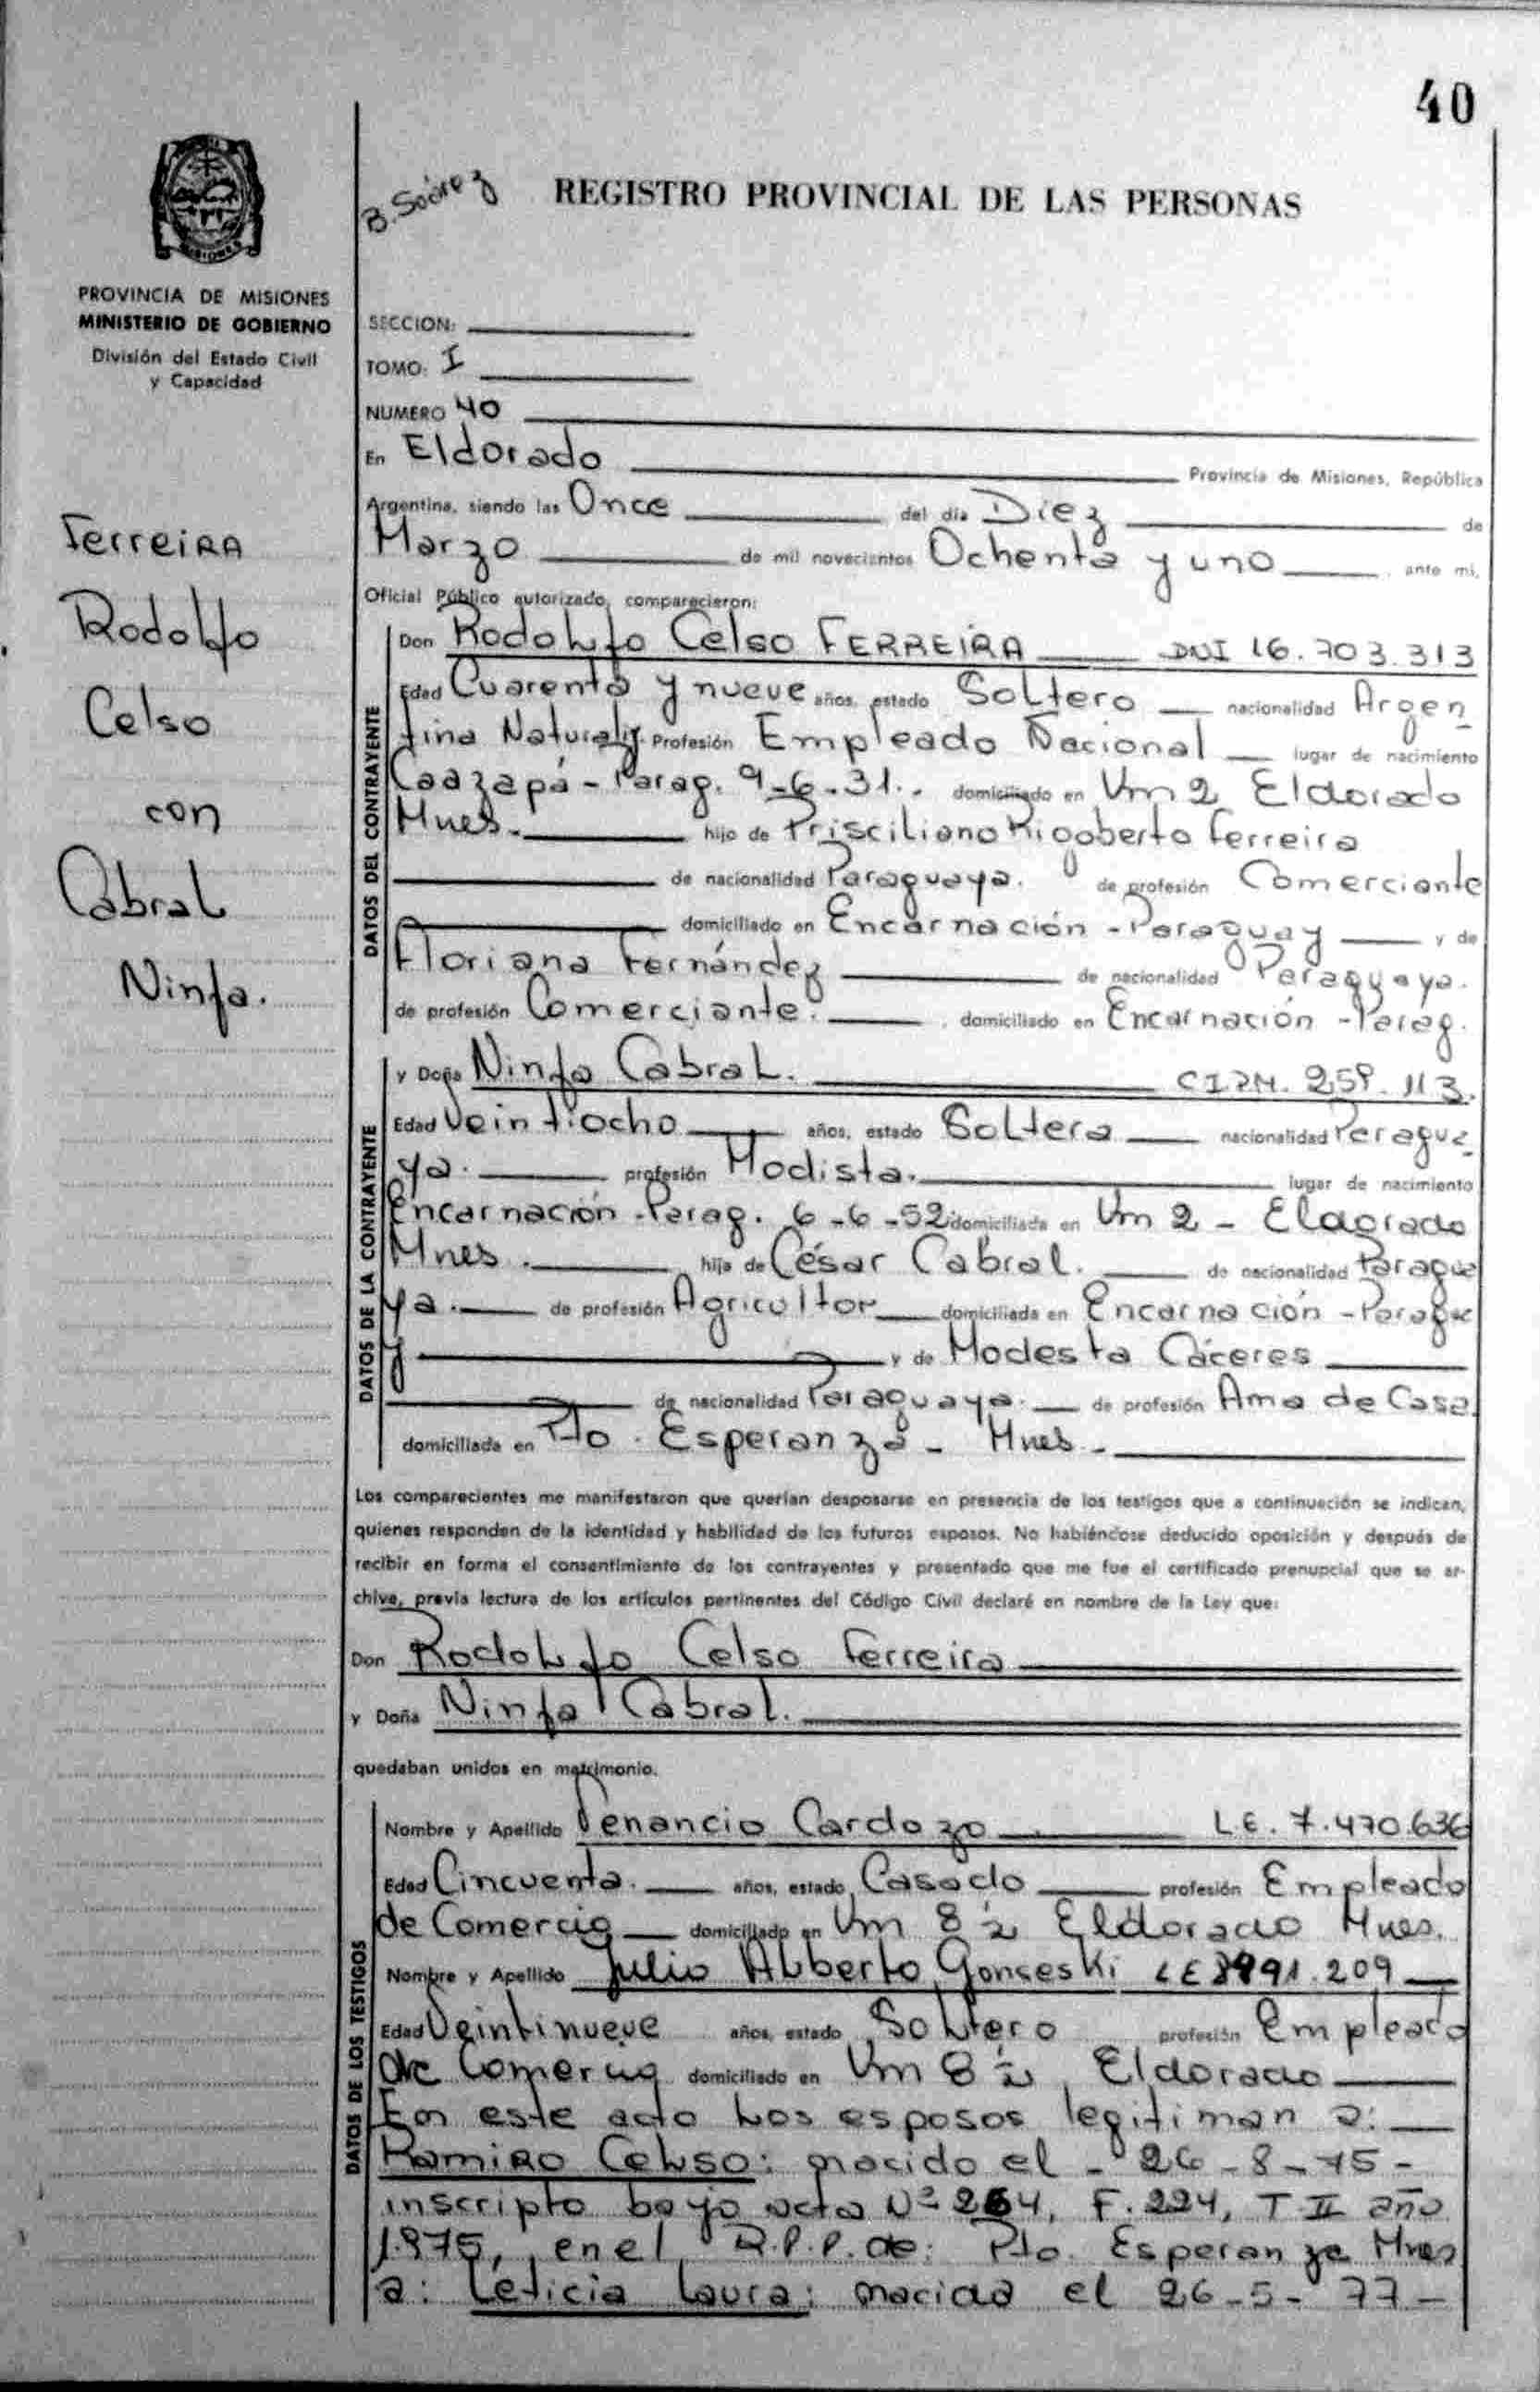 40
B. Soárez
REGISTRO PROVINCIAL DE LAS PERSONAS
MISIONES
PROVINCIA DE MISIONES
MINISTERIO DE GOBIERNO
División del Estado Civil
y Capacidad
SECCION:
TOMO: I
NUMERO 40
En Eldorado Provincia de Misiones, República
Argentina, siendo las Once del día Diez de
Marzo de mil novecientos Ochenta y uno ante mí,
Oficial Público autorizado, comparecieron:
Ferreira
Rodolfo
Celso
con
Cabral
Ninfa.
DATOS DEL CONTRAYENTE
Don Rodolfo Celso FERREIRA DNI 16.703.313
Edad Cuarenta y nueve años, estado Soltero nacionalidad Argen
tina Naturaliz. Profesión Empleado Nacional lugar de nacimiento
Caazapá - Parag. 9-6-31.. domiciliado en Km 2 Eldorado
Mnes. hijo de Prisciliano Rigoberto Ferreira
de nacionalidad Paraguaya. de profesión Comerciante
domiciliado en Encarnación - Paraguay y de
Floriana Fernández de nacionalidad Paraguaya.
de profesión Comerciante. domiciliado en Encarnación - Parag.
DATOS DE LA CONTRAYENTE
y Doña Ninfa Cabral. CIPM. 259.113.
Edad Veintiocho años, estado Soltera nacionalidad Paragua
ya. profesión Modista. lugar de nacimiento
Encarnación - Parag. 6-6-52 domiciliada en Km 2 - Eldorado
Mnes. hija de César Cabral. de nacionalidad Paragua
ya. de profesión Agricultor domiciliada en Encarnación - Paragua
y y de Modesta Cáceres
de nacionalidad Paraguaya. de profesión Ama de Casa.
domiciliada en Pto. Esperanza - Mnes.
Los comparecientes me manifestaron que querían desposarse en presencia de los testigos que a continuación se indican,
quienes responden de la identidad y habilidad de los futuros esposos. No habiéndose deducido oposición y después de
recibir en forma el consentimiento de los contrayentes y presentado que me fue el certificado prenupcial que se ar-
chiva, previa lectura de los artículos pertinentes del Código Civil declaré en nombre de la Ley que:
Don Rodolfo Celso Ferreira
y Doña Ninfa Cabral.
quedaban unidos en matrimonio.
DATOS DE LOS TESTIGOS
Nombre y Apellido Venancio Cardozo L.E. 7.470.636
Edad Cincuenta. años, estado Casado profesión Empleado
de Comercio domiciliado en Km 8 Eldorado Mnes.
Nombre y Apellido Julio Alberto Gonseski LE 209
Edad Veintinueve años, estado Soltero profesión Empleado
de Comercio domiciliado en Km 8 Eldorado
En este acto los esposos legitiman a:
Ramiro Celso: nacido el - 26-8-75-
inscripto bajo acta Nº 264, F. 224, T II año
1975, en el R.P.P. de: Pto. Esperanza Mnes
a: Leticia Laura: nacida el 26-5-77-